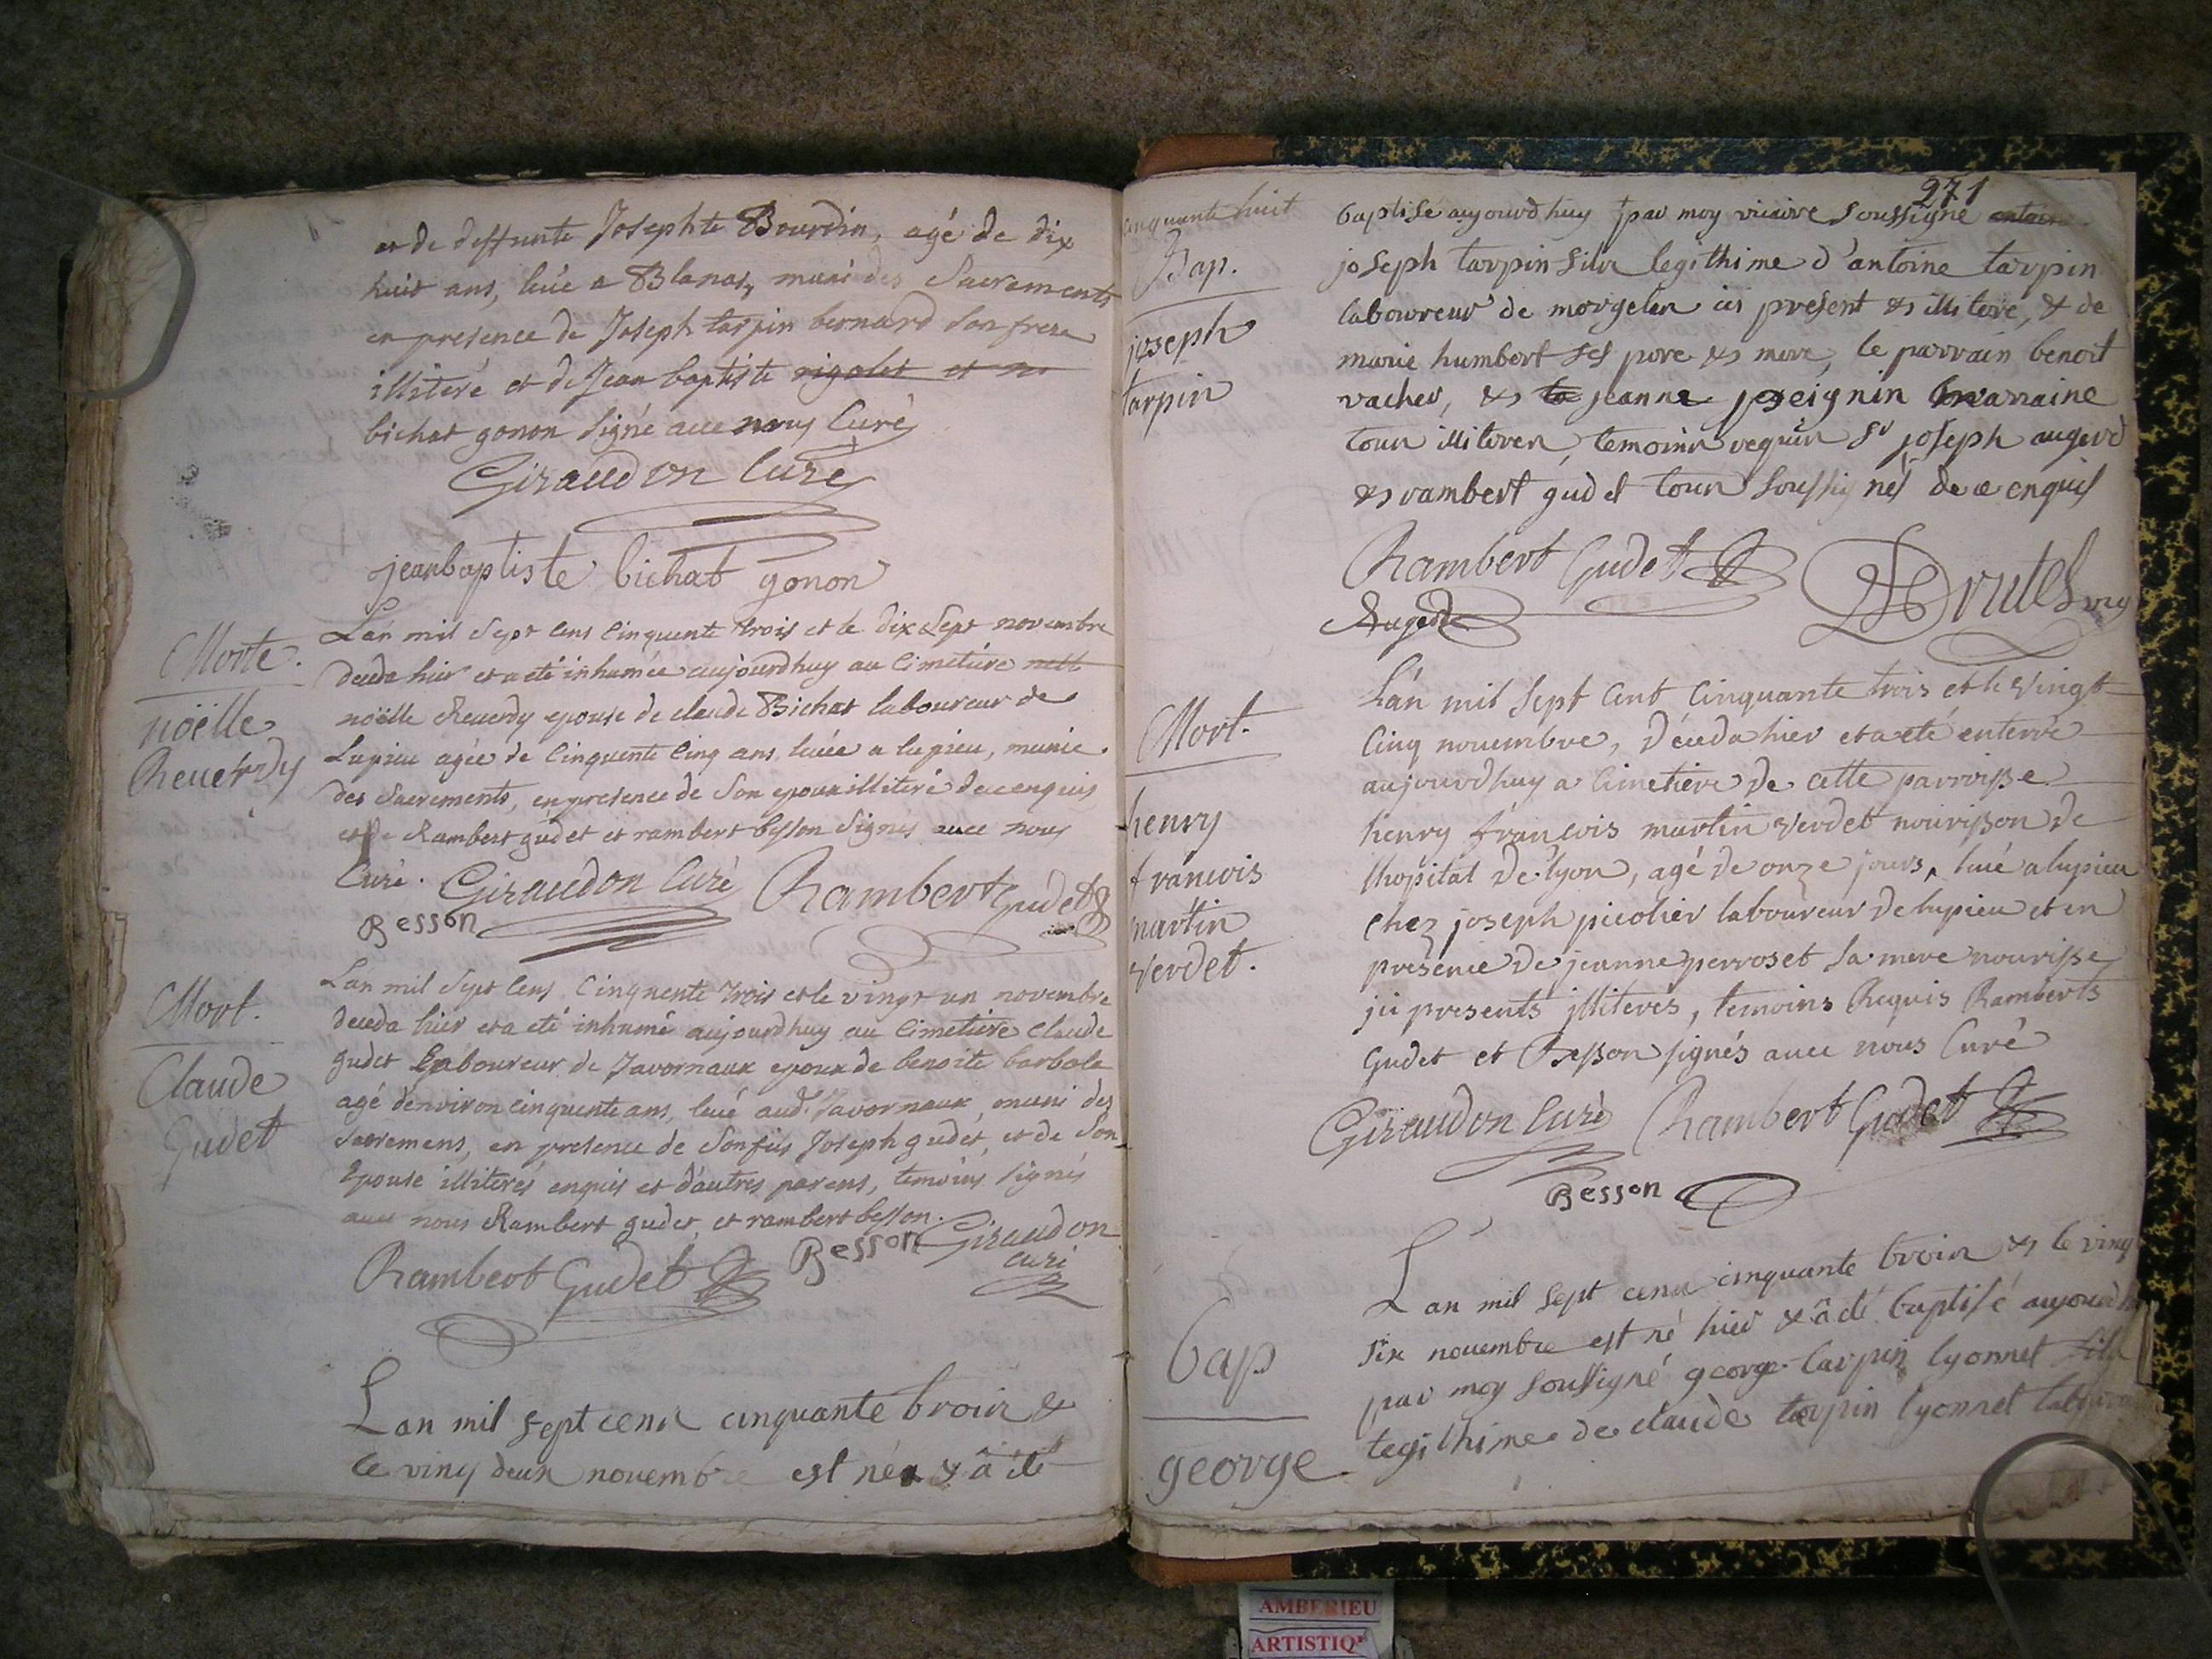 et de deffunte Josephte Bourdin, agé de dix
huit ans, leué a Blanas, muni des Sacrements
en presence de Joseph tarpin bernard son frere
illiteré et de Jean baptiste rigolet et
bichat gonon signé auec nous Curé
Giraudon Curé
jeanbaptiste bichat gonon
Morte.
noëlle
Reuerdy
Lan mil sept cens cinquente trois et le dix sept novembre
deceda hier et a eté inhumée aujourdhuy au Cimetiere
noëlle Reuerdy epouse de claude Bichat laboureur de
Lupieu agée de Cinquente Cinq ans leuée a lupieu, munie
des Sacrements, en presence de Son epoux illiteré de ce enquis
et de Rambert gudet et rambert besson signés auec nous
Curé. Giraudon Curé Rambert Gudet
Besson
Mort.
Claude
Gudet
Lan mil sept cens Cinquente trois et le vingt un novembre
deceda hier et a eté inhumé aujourdhuy au Cimetiere Claude
gudet Laboureur de Javornaux epoux de benoite barbole
agé denviron cinquente ans, leué aud. Javornaux, muni des
Sacremens, en presence de Son fils Joseph gudet, et de Son
Epouse illiterés enquis et dautres parens, temoins signés
auec nous Rambert gudet, et rambert besson.
Giraudon
curé
Rambert Gudet Besson
Lan mil sept cens cinquante trois &
le ving deux novembre est né & â été
271
cinquante huit
Bap.
joseph
tarpin
baptisé aujourdhuy par moy vicaire soussigné antoine
joseph tarpin fils legithime d'antoine tarpin
laboureur de morgelas ici present et illiteré, & de
marie humbert ses pere et mere, le parrain benoit
vacher, et la jeanne peignin marraine
tous illiteres, temoins requis Sr joseph augerd
et rambert gudet tous soussignés de ce enquis
Rambert Gudet
Augerd
Drutel
Mort.
henry
francois
martin
verdet.
Lán mil sept cent Cinquante trois et le vingt
Cinq nouembre, déceda hier et a eté enterré
aujourdhuy a Cimetiere de cette parroisse
henry françois martin verdet nourisson de
lhopital de lyon, agé de onze jours, leué a lupieu
chez joseph picolier laboureur de lupieu et en
presence de jeanne perroset sa mere nourisse
ici presents illiteres, temoins Requis Ramberts
Gudet et Besson signés auec nous Curé
Giraudon Curé Rambert Gudet
Besson
bap
george
Lan mil sept cens cinquante trois et le ving
six nouembre est né hier & â été baptisé aujourdh
par moy soussigné george tarpin lyonnet fils
legithime de claude tarpin lyonnet
AMBERIEU
ARTISTIQ